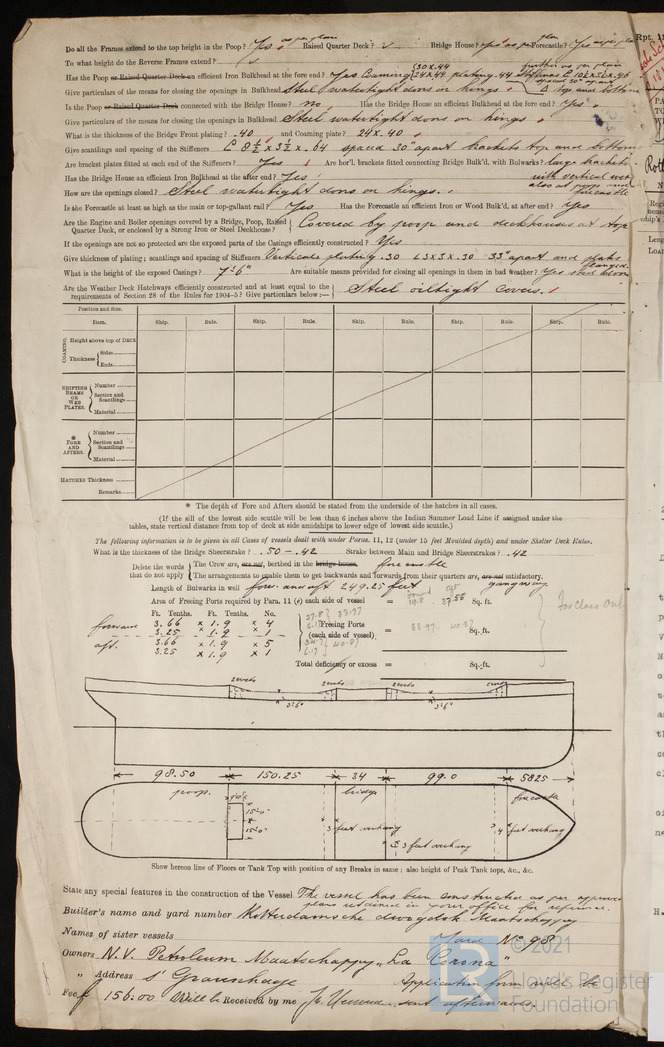 Do all the Frames extend to the top height in the Poop? Yes as per plan Raised Quarter Deck? Bridge House? yes as per plan Forecastle? Yes as per plan
To what height do the Reverse Frames extend?
Has the Poop or Raised Quarter Deck an efficient Iron Bulkhead at the fore end? Yes Coaming 30 x .44 24 x .44 plating .44 stiffeners
further as per plan
spaced 30" apart
Give particulars of the means for closing the openings in Bulkhead Steel watertight doors on hinges. top and bottom
Is the Poop or Raised Quarter Deck connected with the Bridge House? no Has the Bridge House an efficient Bulkhead at the fore end? yes
Give particulars of the means for closing the openings in Bulkhead Steel watertight doors on hinges
What is the thickness of the Bridge Front plating? .40 and Coaming plate? 24 x .40
Give scantlings and spacing of the Stiffeners L 8½ x 3½ x .64 spaced 30" apart brackets top and bottom
Are bracket plates fitted at each end of the Stiffeners? Yes Are hor'l. brackets fitted connecting Bridge Bulk'd. with Bulwarks? large brackets
with vertical
also at poop and forecastle
Has the Bridge House an efficient Iron Bulkhead at the after end? Yes
How are the openings closed? Steel watertight doors on hinges.
Is the Forecastle at least as high as the main or top-gallant rail? Yes Has the Forecastle an efficient Iron or Wood Bulk'd, at after end? yes
Are the Engine and Boiler openings covered by a Bridge, Poop, Raised Quarter Deck, or enclosed by a Strong Iron or Steel Deckhouse? Covered by poop and deckhouses at top
If the openings are not so protected are the exposed parts of the Casings efficiently constructed? Yes
Give thickness of plating; scantlings and spacing of Stiffeners Verticale plating .30 L 3 x 3 x .30 33" apart and plate flanged
What is the height of the exposed Casings? 7'-6" Are suitable means provided for closing all openings in them in bad weather? yes steel doors
Are the Weather Deck Hatchways efficiently constructed and at least equal to the requirements of Section 28 of the Rules for 1904-5? Give particulars below:— Steel oiltight covers.
Position and size.
Item. Ship. Rule. Ship. Rule. Ship. Rule. Ship. Rule. Ship. Rule.
COAMING. Height above top of DECK
Thickness Sides
Ends
SHIFTING BEAMS OR WEB PLATES. Number
Section and Scantlings
Material
* FORE AND AFTERS. Number
Section and Scantlings
Material
HATCHES Thickness
Remarks
* The depth of Fore and Afters should be stated from the underside of the hatches in all cases.
(If the sill of the lowest side scuttle will be less than 6 inches above the Indian Summer Load Line if assigned under the
tables, state vertical distance from top of deck at side amidships to lower edge of lowest side scuttle.)
The following information is to be given in all Cases of vessels dealt with under Paras. 11, 12 (under 15 feet Moulded depth) and under Shelter Deck Rules.
What is the thickness of the Bridge Sheerstrake? .50 — .42 Strake between Main and Bridge Sheerstrakes? .42
Delete the words that do not apply
The Crew are, are not, berthed in the bridge house. forecastle
The arrangements to enable them to get backwards and forwards from their quarters are, are not satisfactory. gangway
Length of Bulwarks in well fore and aft 249.25 feet
Area of Freeing Ports required by Para. 11 (e) each side of vessel = 19.8 37.56 Sq. ft.
For class only
Ft. Tenths. Ft. Tenths. No.
forward 3.66 x 1.9 x 4
3.25 x 1.9 x 1
aft. 3.66 x 1.9 x 5
3.25 x 1.9 x 1
Freeing Ports (each side of vessel) = 33.97 40.87 Sq. ft.
Total deficiency or excess = Sq. ft.
3'6" 3'6"
98.50 150.25 34 99.0 58.25
poop. bridge forecastle
15'-0"
15'-0"
3 feet overhang
3 feet overhang
4 feet overhang
Show hereon line of Floors or Tank Top with position of any Breaks in same; also height of Peak Tank tops, &c., &c.
State any special features in the construction of the Vessel The vessel has been constructed as per approved
plans retained in your office for reference.
Builder's name and yard number Rotterdamsche droogdok Maatschappy
Names of sister vessels Yard No 98
Owners N.V. Petroleum Maatschappy "La Corona"
" Address s' Gravenhage Application form will be
Fee f 156:00 Will be Received by me sent afterwards.
© 2021
Lloyd's Register
Foundation
Rpt. 1